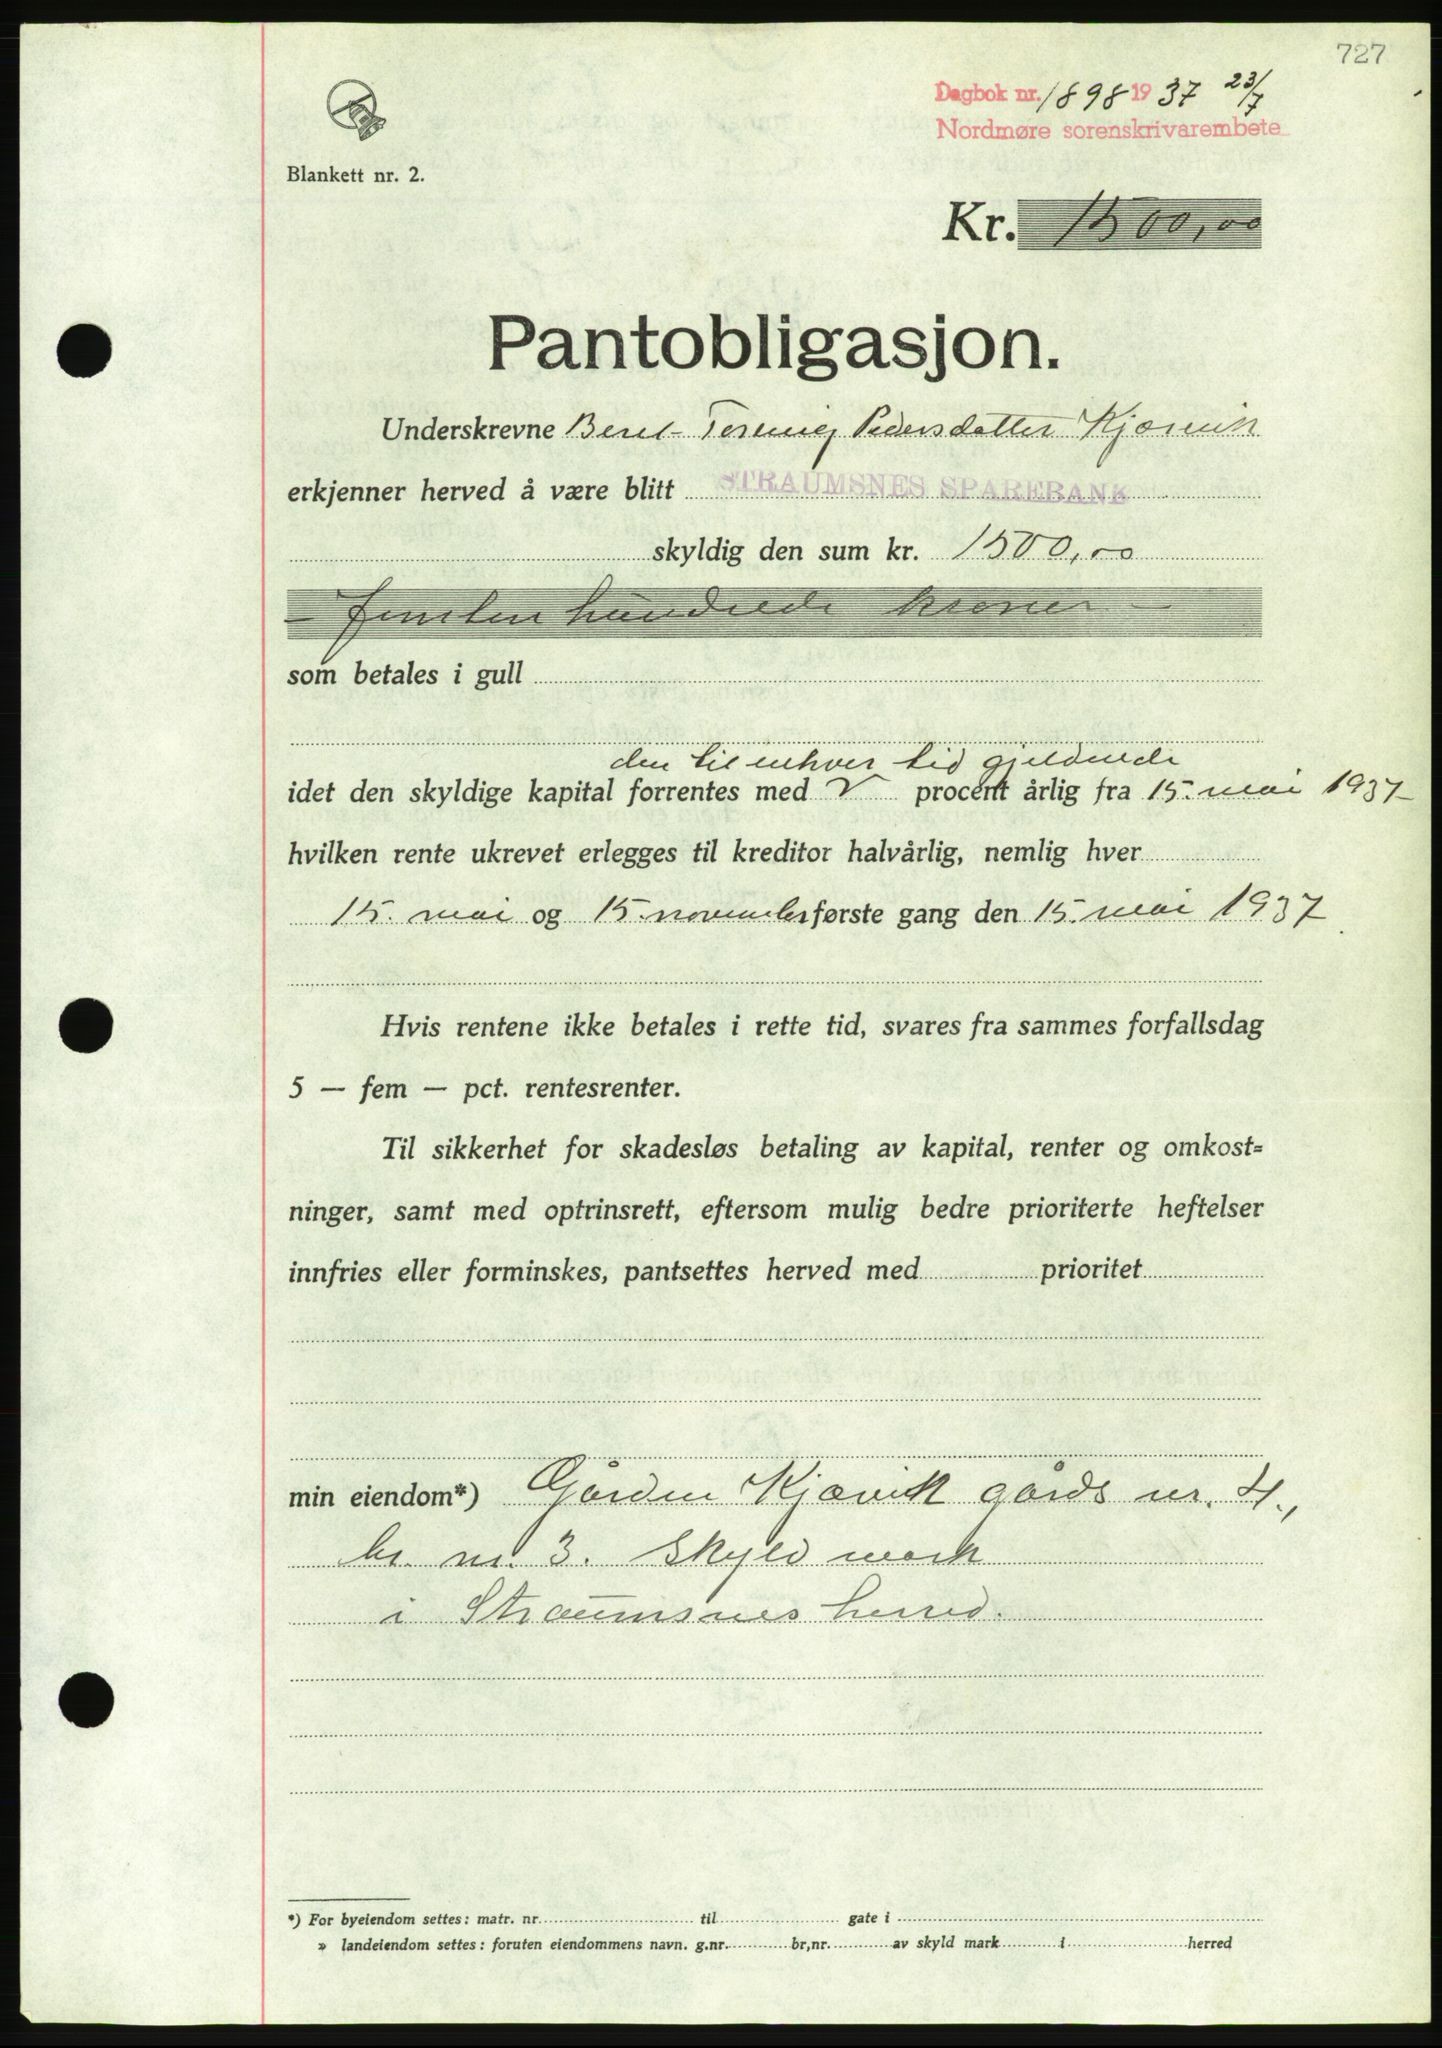 727
Dagbok nr. 1898 1937 23/7
Nordmøre sorenskrivarembete
Blankett nr. 2.
Kr. 1500,00
Pantobligasjon.
Underskrevne Beret Pedersdatter Kjørvik
erkjenner herved å være blitt STRAUMSNES SPAREBANK
skyldig den sum kr. 1500,00
- femten hundrede kroner -
som betales i gull
den til enhver tid gjeldende
idet den skyldige kapital forrentes med V procent årlig fra 15. mai 1937
hvilken rente ukrevet erlegges til kreditor halvårlig, nemlig hver
15. mai og 15. november første gang den 15. mai 1937
Hvis rentene ikke betales i rette tid, svares fra sammes forfallsdag
5 — fem — pct. rentesrenter.
Til sikkerhet for skadesløs betaling av kapital, renter og omkost=
ninger, samt med optrinsrett, eftersom mulig bedre prioriterte heftelser
innfries eller forminskes, pantsettes herved med prioritet
min eiendom*) Gården Kjøvik gårds nr. 4.,
br. nr. 3. Skyld mark
i Straumsnes herred.
*) For byeiendom settes: matr. nr. til gate i
» landeiendom settes: foruten eiendommens navn. g.nr. br,nr. av skyld mark i herred